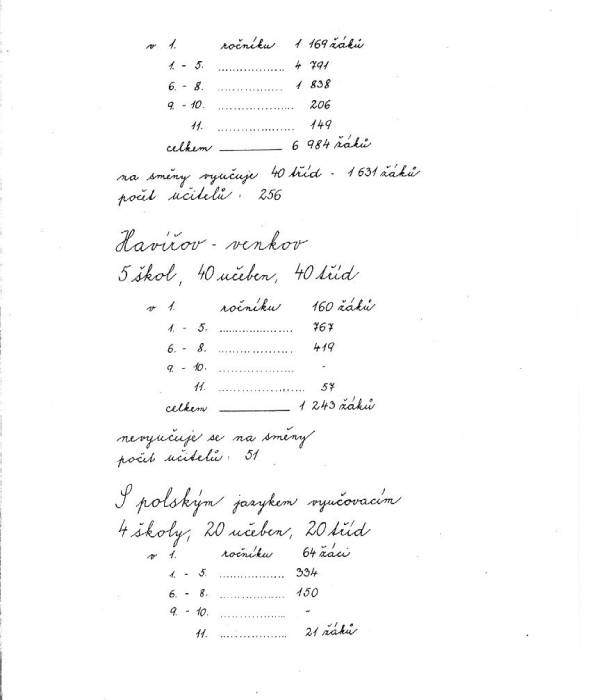 v 1. ročníku 1 169 žáků
1. - 5. ................... 4 791
6. - 8. ................... 1 838
9. - 10. ................... 206
11. ................... 149
celkem ________ 6 984 žáků
na směny vyučuje 40 tříd - 1 631 žáků
počet učitelů : 256
Havířov - venkov
5 škol, 40 učeben, 40 tříd
v 1. ročníku 160 žáků
1. - 5. ................... 767
6. - 8. ................... 419
9. - 10. ................... -
11. ................... 57
celkem ________ 1 243 žáků
nevyučuje se na směny
počet učitelů : 51
S polským jazykem vyučovacím
4 školy, 20 učeben, 20 tříd
v 1. ročníku 64 žáci
1. - 5. ................... 334
6. - 8. ................... 150
9. - 10. ................... -
11. ................... 21 žáků